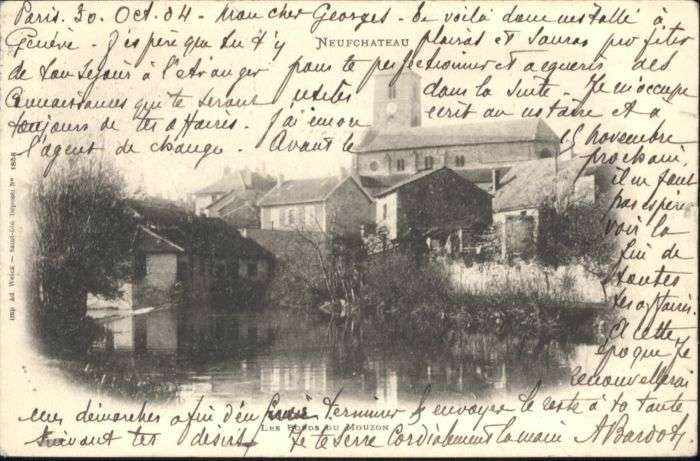 Paris. 30. Oct. 04 - mon cher Georges - te voilà donc installé à
Genève - J'espère que tu t'y plairas et sauras profiter
NEUFCHATEAU
de ton séjour à l'étranger pour te perfectionner et acquérir des
Connaissances que te seront utiles dans la suite - Je m'occupe
toujours de tes affaires. J'ai encore écrit au notaire et à
l'agent de change - Avant le 15 novembre
prochain,
il ne faut
pas espérer
voir la
fin de
toutes
tes affaires.
A cette
époque je
renouvellerai
mes démarches afin d'en finir terminer & envoyer le reste à ta tante
suivant tes désirs - Je te serre cordialement la main A Bardot
LES BORDS DU MOUZON
Imp Ad Weick - Saint-Dié Déposée No 1858